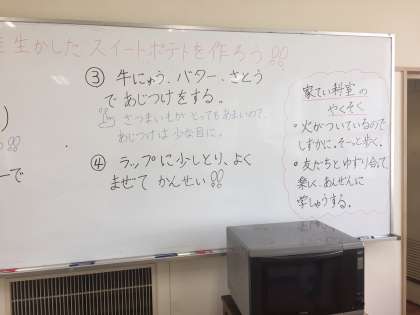 生かした スイートポテトを作ろう!!
③ 牛にゅう、バター、さとう
であじつけをする。
さつまいもが とってもあまいので、
あじつけは 少な目に。
④ ラップに少しとり、よく
まぜて かんせい!!
ーで
家てい科室の
やくそく
・火がついているので
しずかに、そーっと歩く。
・友だちと ゆずり合って
楽しく、あんぜんに
学しゅうする。